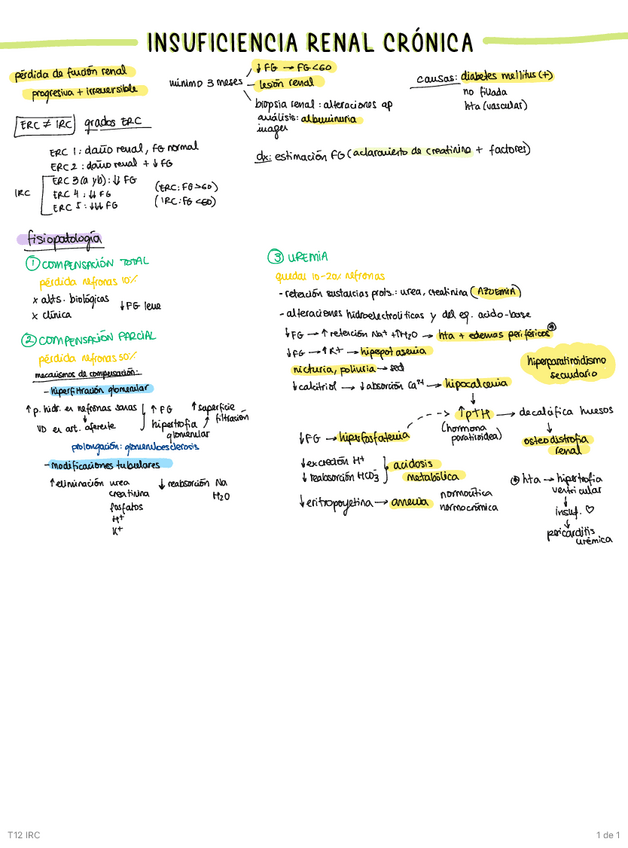 INSUFICIENCIA RENAL CRÓNICA
pérdida de función renal
progresiva + irreversible
mínimo 3 meses
↓ FG → FG<60
lesión renal
biopsia renal: alteraciones ap
análisis: albuminuria
imagen
causas: diabetes mellitus (+)
no filiada
hta (vascular)
ERC ≠ IRC
grados ERC
dx: estimación FG (aclaramiento de creatinina + factores)
ERC 1: daño renal, FG normal
ERC 2: daño renal + ↓ FG
IRC
ERC 3 (a y b): ↓↓ FG
ERC 4: ↓↓ FG
ERC 5: ↓↓↓ FG
(ERC: FG>60)
(IRC: FG<60)
fisiopatología
① COMPENSACIÓN TOTAL
pérdida nefronas 10%
x alts. biológicas
x clínica
↓ FG leve
② COMPENSACIÓN PARCIAL
pérdida nefronas 50%
mecanismos de compensación:
- hiperfiltración glomerular
↑ p. hidr. en nefronas sanas
↓
VD en art. aferente
↑ FG
hipertrofia
glomerular
↑ superficie
filtración
prolongación: glomeruloesclerosis
- modificaciones tubulares
↑ eliminación urea
creatinina
fosfatos
H⁺
K⁺
↓ reabsorción Na
H₂O
③ UREMIA
quedan 10-20% nefronas
- retención sustancias prots.: urea, creatinina (AZOEMIA)
- alteraciones hidroelectrolíticas y del eq. acido-base
↓ FG → ↑ retención Na⁺ + ↑H₂O → hta + edemas periféricos
↓ FG → ↑ K⁺ → hiperpotasemia
nicturia, poliuria → sed
↓ calcitriol → ↓ absorción Ca²⁺ → hipocalcemia
hiperparatiroidismo
secundario
↑ PTH → decalcifica huesos
(hormona
paratiroidea)
↓
osteodistrofia
renal
↓ FG → hiperfosfatemia
↓ excreción H⁺
↓ reabsorción HCO₃⁻
acidosis
metabólica
↓ eritropoyetina → anemia
normocítica
normocrómica
* hta → hipertrofia
ventricular
↓
insuf. ♡
↓
pericarditis
urémica
T12 IRC
1 de 1